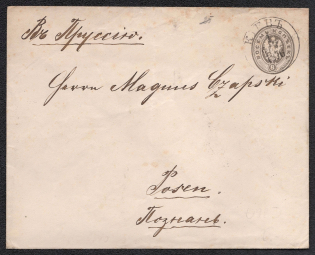 Въ Пруссію.
Herrn Magnus Czapski
Posen.
Познань.